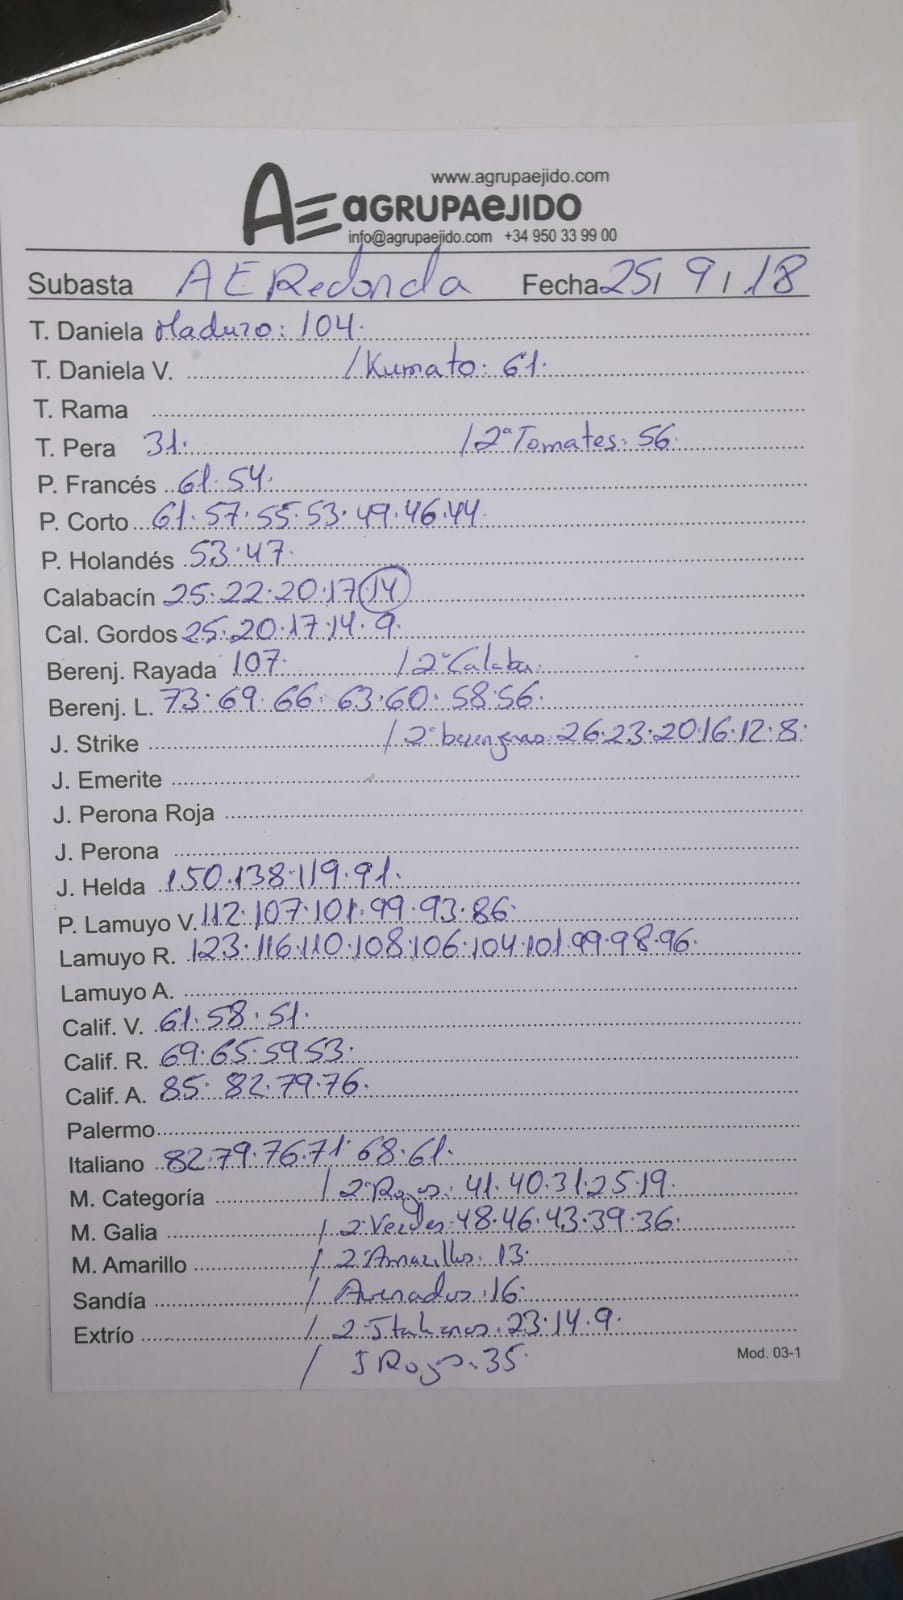 www.agrupaejido.com
AE AGRUPAEJIDO
info@agrupaejido.com +34 950 33 99 00
Subasta AERedonda Fecha 25/ 9 / 18
T. Daniela Maduro: 104.
T. Daniela V. /Kumato: 61.
T. Rama
T. Pera 31. /2ª Tomates: 56.
P. Francés 61.54.
P. Corto 61.57.55.53.49.46.44.
P. Holandés 53.47.
Calabacín 25.22.20.17.14
Cal. Gordos 25.20.17.14.9.
Berenj. Rayada 107. /2ª Calaba.
Berenj. L. 73.69.66.63.60.58.56.
J. Strike /2ª berenjenas.26.23.20.16.12.8.
J. Emerite
J. Perona Roja
J. Perona
J. Helda 150.138.119.91.
P. Lamuyo V. 112.107.101.99.93.86.
Lamuyo R. 123.116.110.108.106.104.101.99.98.96.
Lamuyo A.
Calif. V. 61.58.51.
Calif. R. 69.65.59.53.
Calif. A. 85.82.79.76.
Palermo
Italiano 82.79.76.71.68.61.
M. Categoría /2ª Rojos. 41.40.31.25.19.
M. Galia /2 Verdes.48.46.43.39.36.
M. Amarillo /2 Amarillos. 13.
Sandía / Asurados.16.
Extrío /2 Italianos.23.14.9.
/ I Rojos.35.
Mod. 03-1